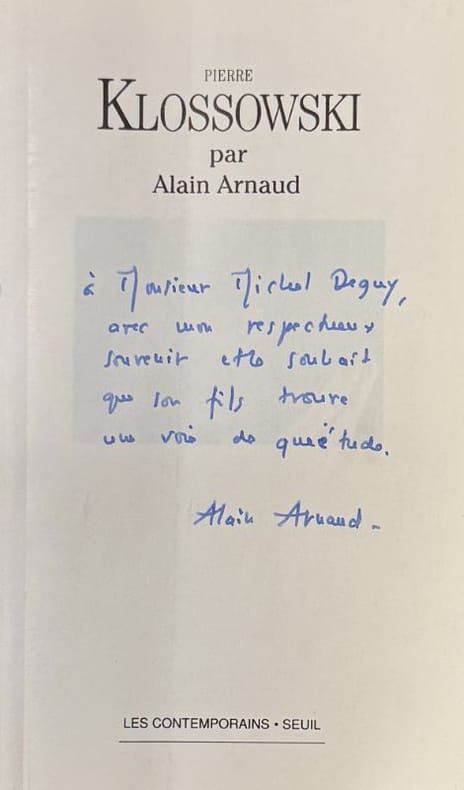 PIERRE
KLOSSOWSKI
par
Alain Arnaud
à Monsieur Michel Deguy,
avec mon respectueux
souvenir et le souhait
que son fils trouve
une voie de quiétude.
Alain Arnaud.
LES CONTEMPORAINS • SEUIL